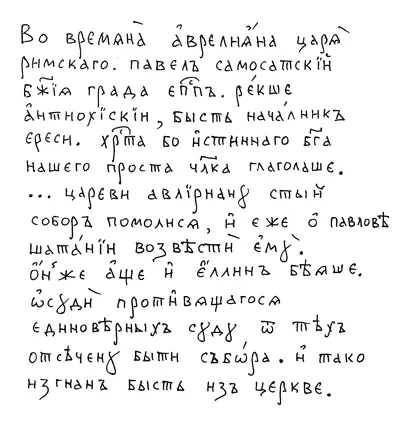 Во времѧна̀ а҆врелиа҆́на царѧ̀
римскаго. павелъ самосатскїй
бж҃їѧ града еп҃пъ. ре́кше
а҆нтиохїскїи, бысть нача́лникъ
ереси. хрⷭ҇та бо и҆стиннаго бг҃а
нашего проста чл҃ка глаголаше.
... цареви авлїрианꙋ стый
соборъ помолисѧ, и҆ еже о҆ павловѣ
шата́нїи возвѣстѝ е҆мꙋ̀.
ѻ҆́н же а҆ще и҆ е҆́ллинъ бѣѧше.
ѡ҆сꙋдѝ проти́вѧщагосѧ
единовѣрныхъ сꙋдꙋ ѿ тѣхъ
отсѣченꙋ быти събѡ́ра. и҆ тако
изгнанъ бысть изъ церкве.